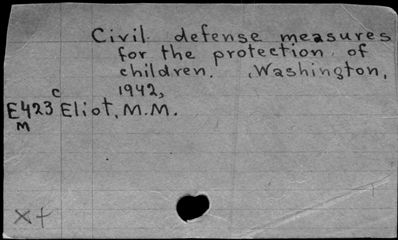 Civil defense measures
for the protection of
children. Washington,
1942,
c
E423 Eliot, M.M.
M
x+